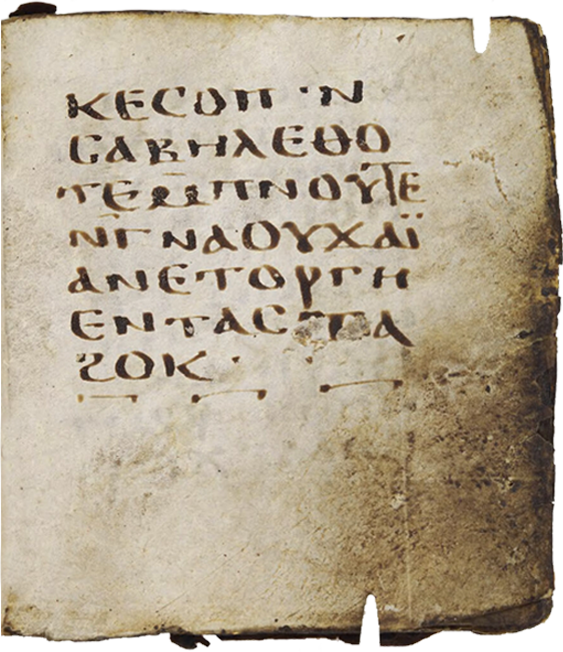 ⲕⲉⲥⲟⲡ · ⲛ
ⲥⲁⲃⲏⲗⲉⲑⲟ
ⲧⲉⲙ̅ⲡⲛⲟⲩⲧⲉ
ⲛⲅ̅ⲛⲁⲟⲩϫⲁⲓ̈
ⲁⲛⲉⲧⲟⲩⲅⲏ
ⲉⲛⲧⲁⲥⲧⲁ
ϩⲟⲕ ·